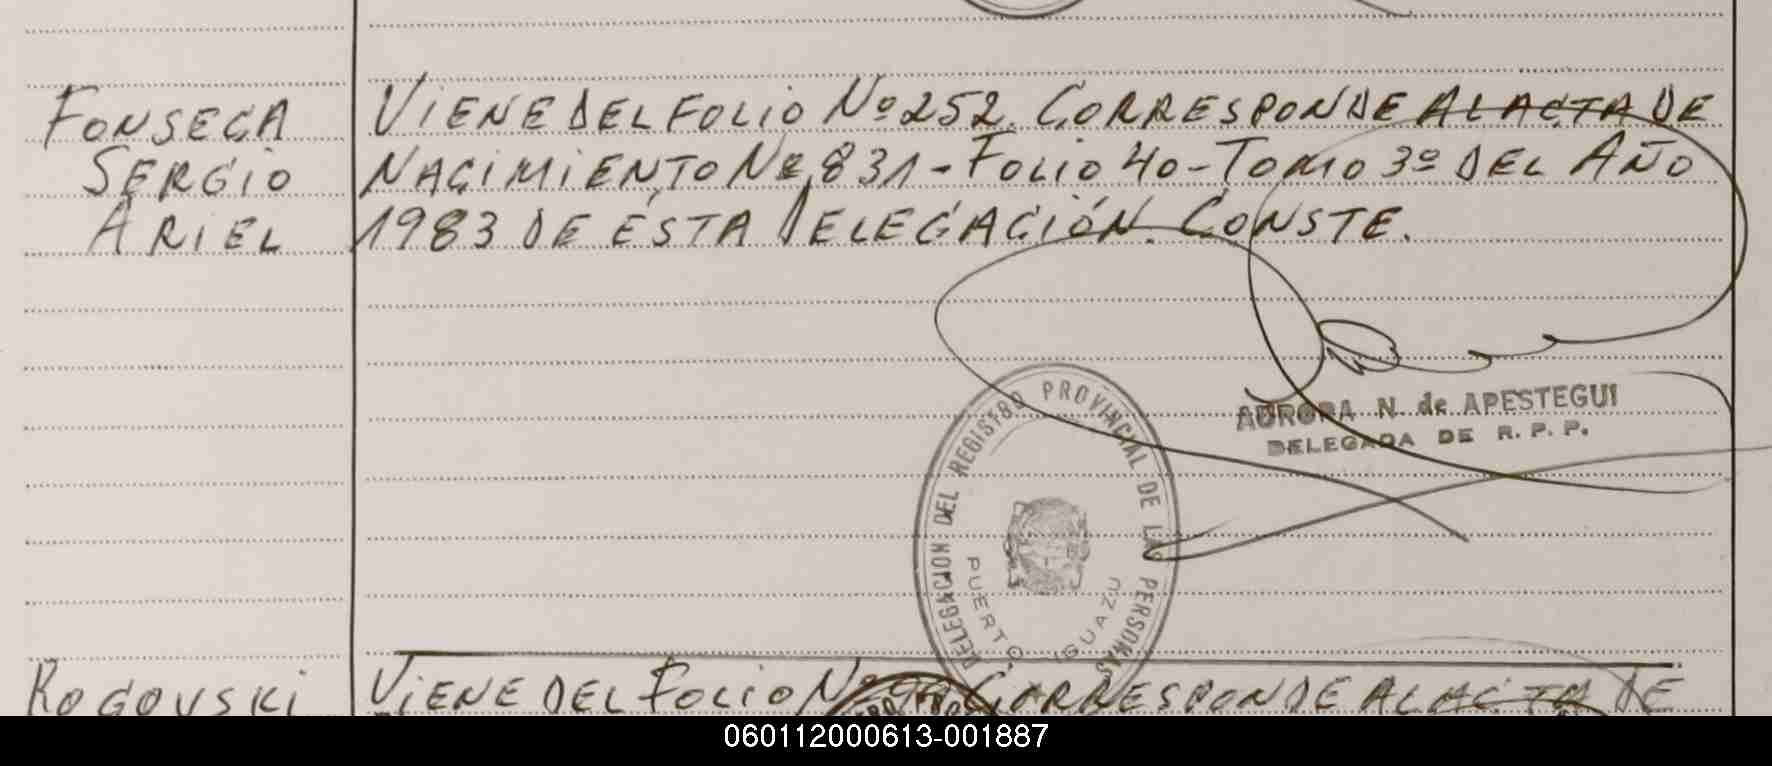 FONSECA
SERGIO
ARIEL
VIENE DEL FOLIO Nº 252. CORRESPONDE AL ACTA DE
NACIMIENTO Nº 831 - FOLIO 40 - TOMO 3º DEL AÑO
1983 DE ÉSTA DELEGACIÓN. CONSTE.
AURORA N. de APESTEGUI
DELEGADA DE R. P. P.
DELEGACION DEL REGISTRO PROVINCIAL DE LAS PERSONAS
PUERTO IGUAZU
ROGOVSKI
VIENE DEL FOLIO Nº CORRESPONDE AL ACTA DE
060112000613-001887